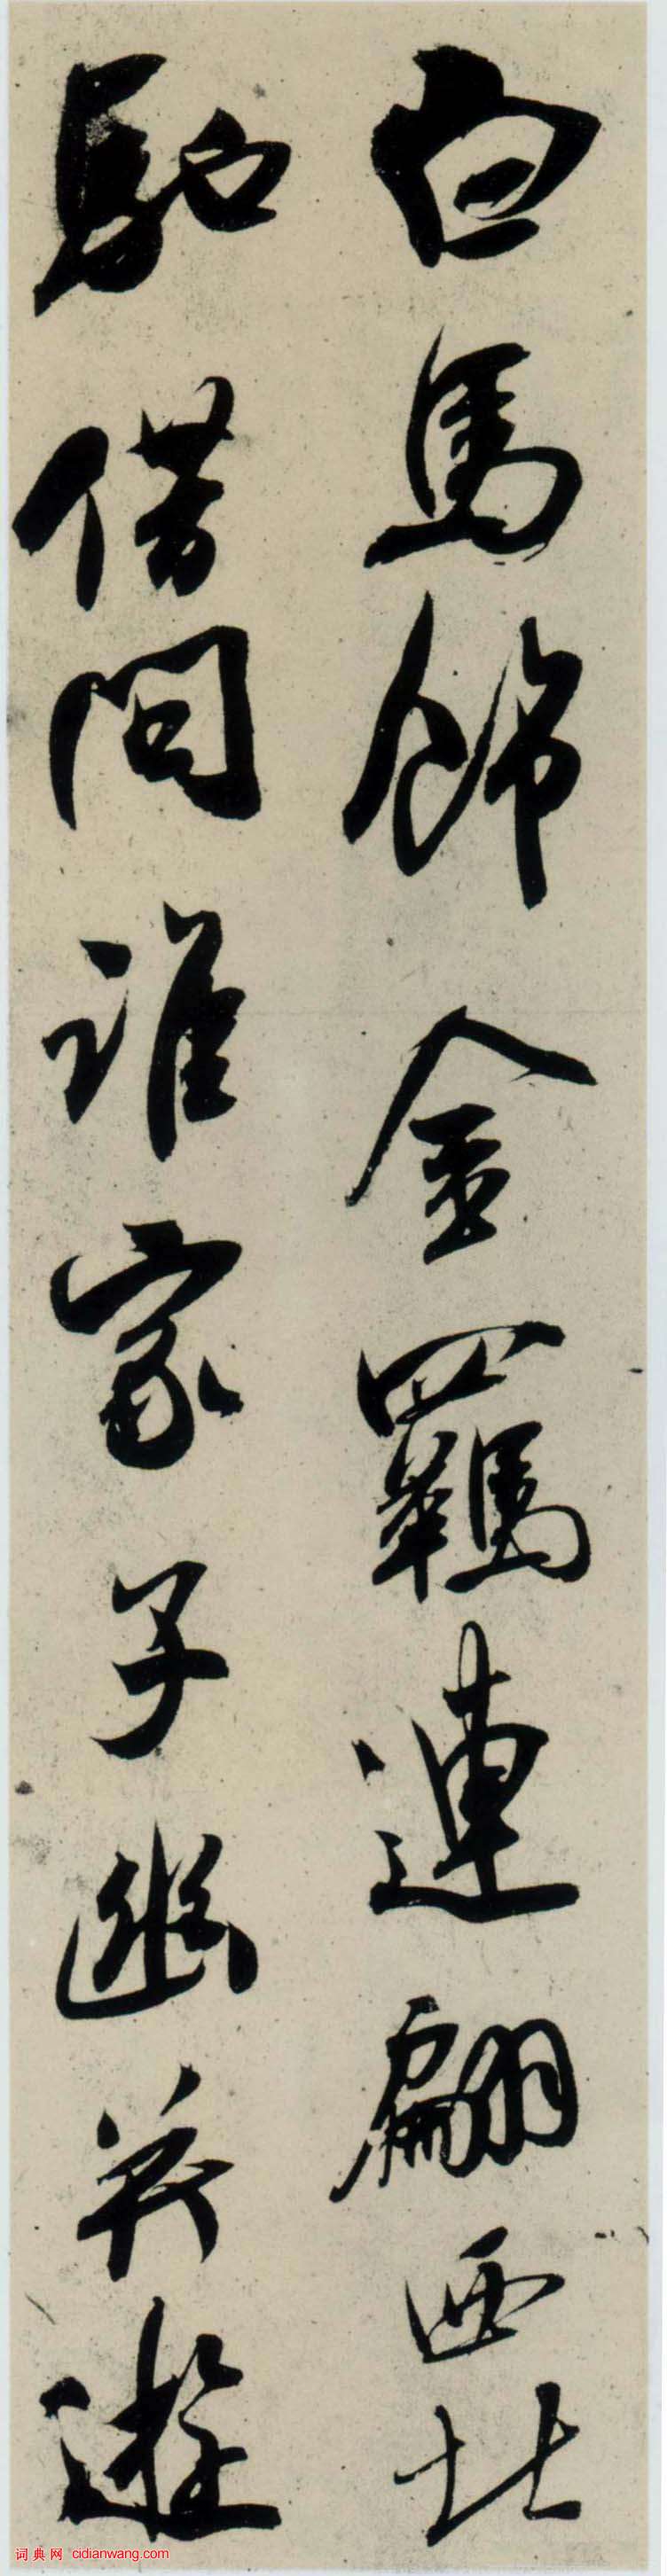 白馬飾金羈連翩西北
馳借問誰家子幽并遊
词典网 cidianwang.com